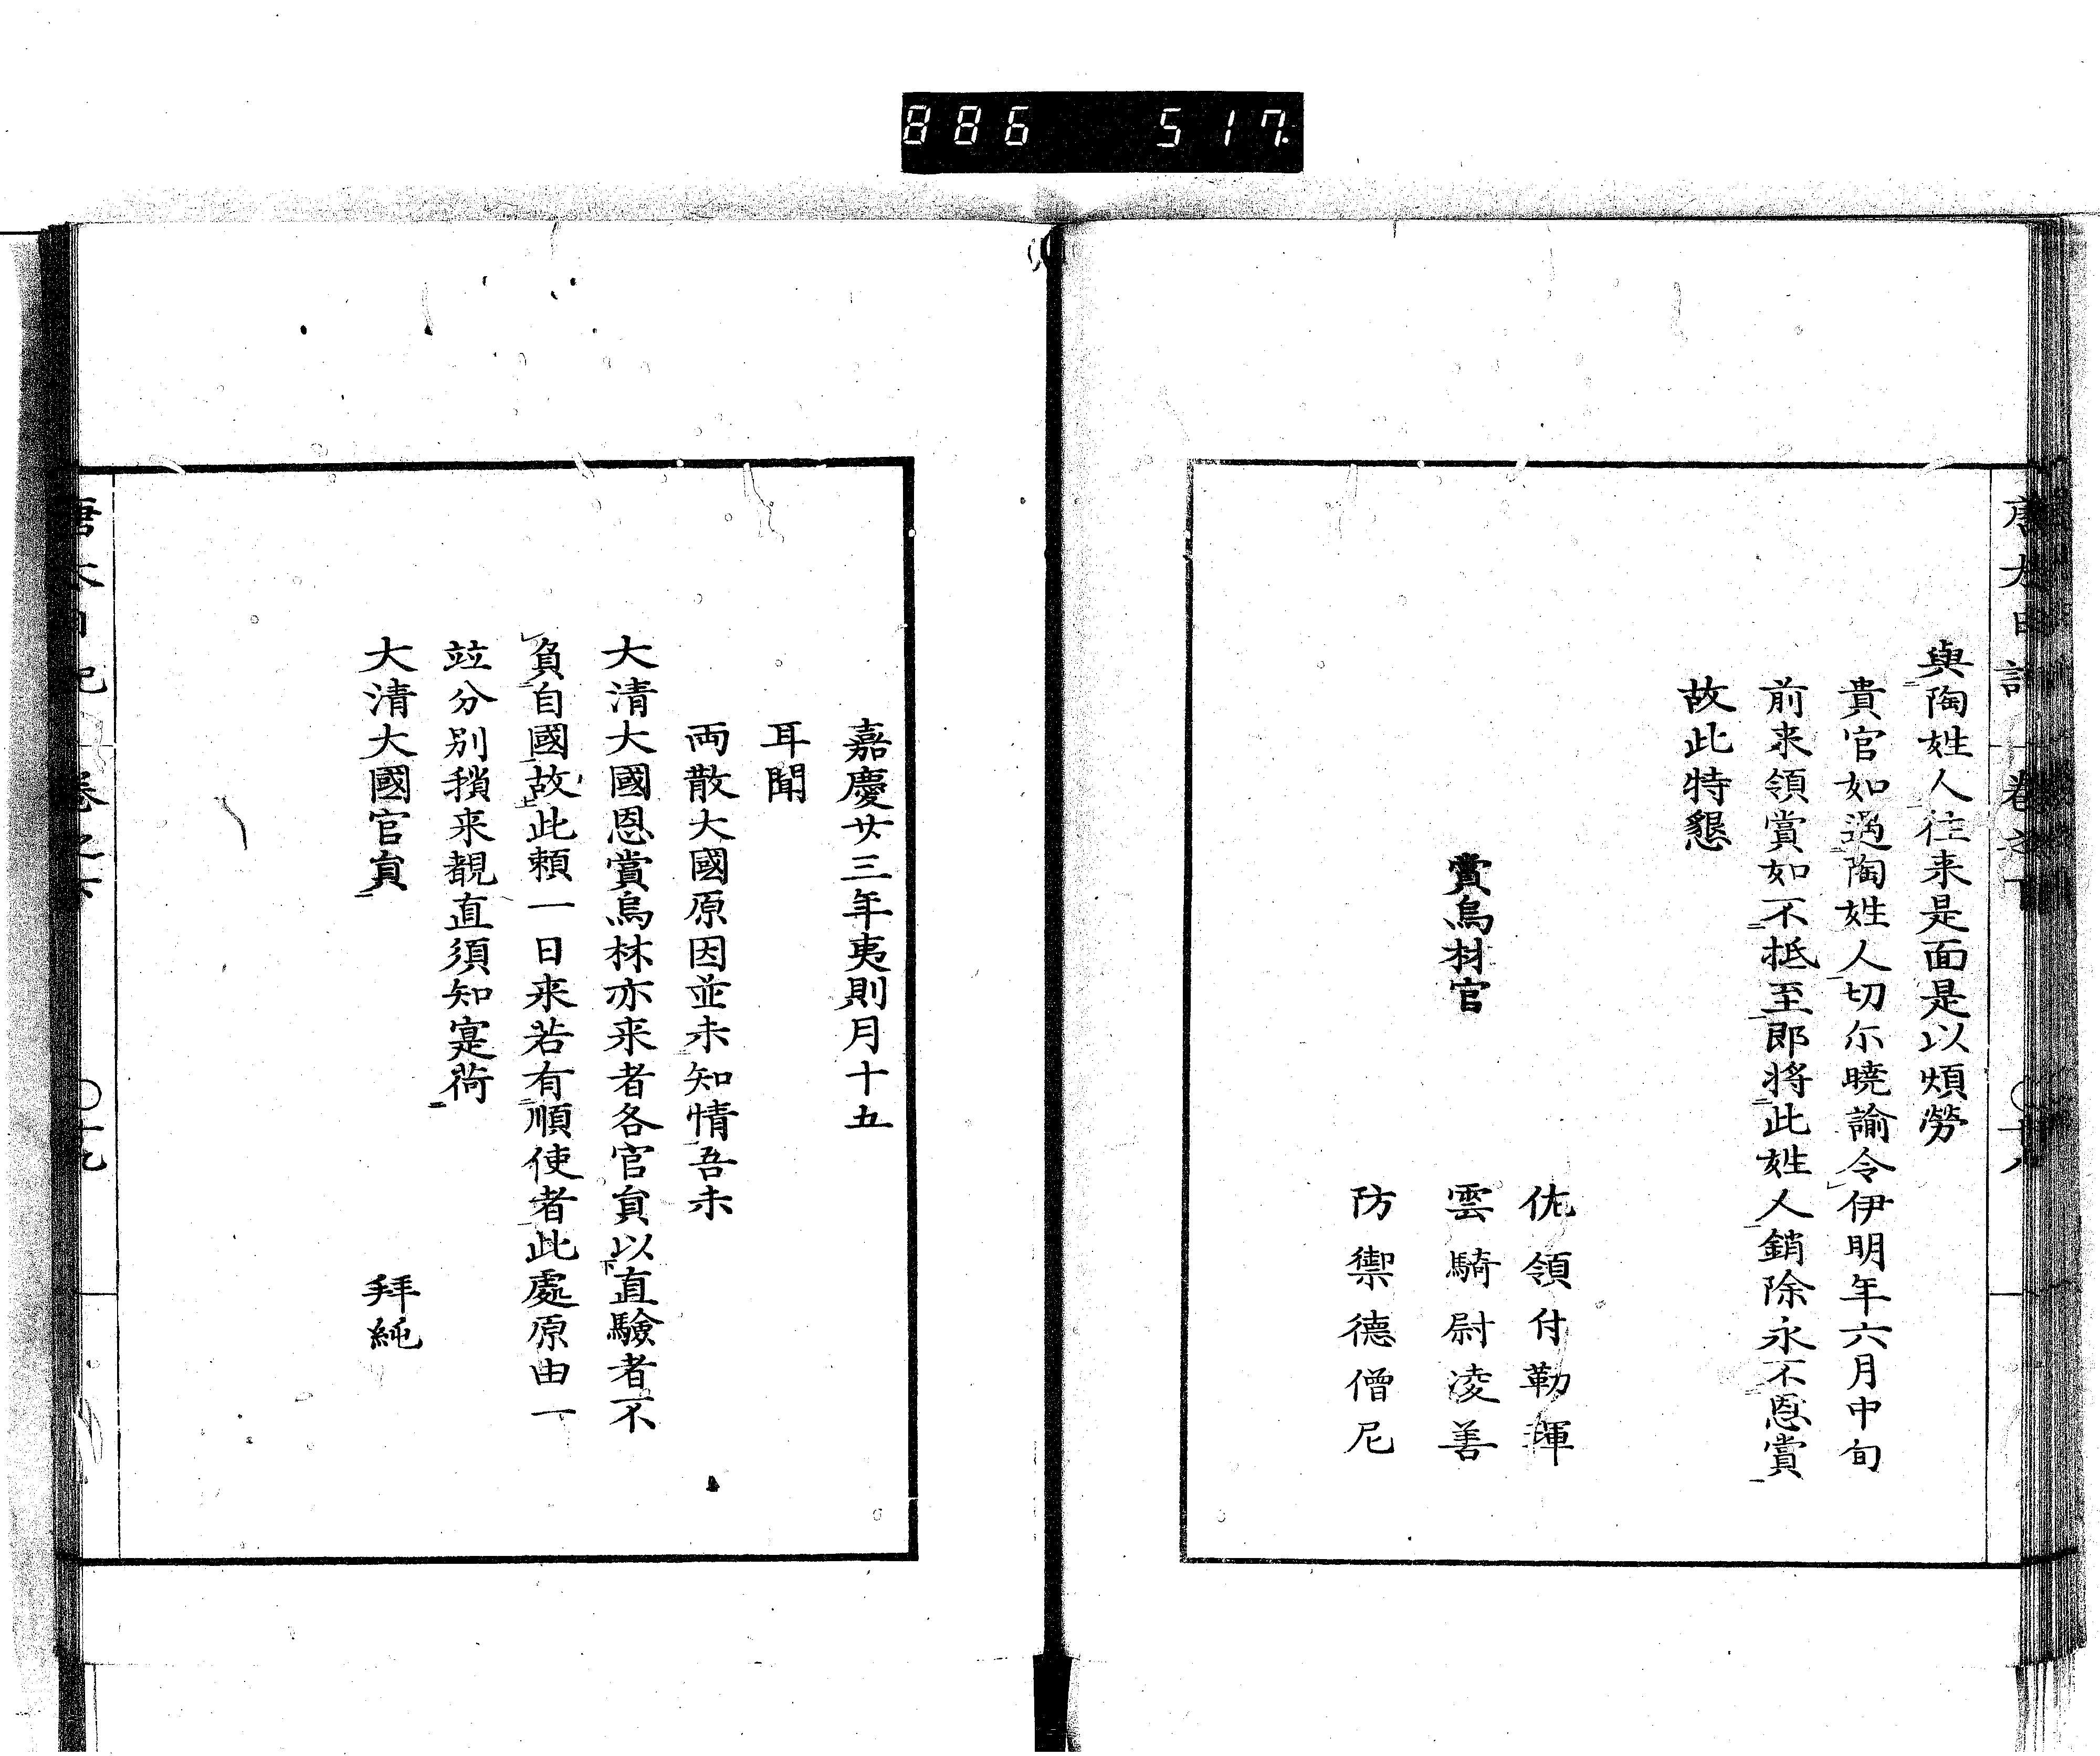 886 517
與陶姓人往来是面是以煩勞
貴官如遇陶姓人切尓曉諭令伊明年六月中旬
前来領賞如不抵至即将此姓人銷除永不恩賞
故此特懇
佐領付勒琿
賞烏林官 雲騎尉凌善
防禦德僧尼
嘉慶廿三年夷則月十五
耳聞
両散大國原因並未知情吾未
大清大國恩賞烏林亦来者各官員以直驗者不
負自國故此頼一日来若有順使者此處原由一
竝分別稍来覩直須知寔荷
大清大國官員 拜純